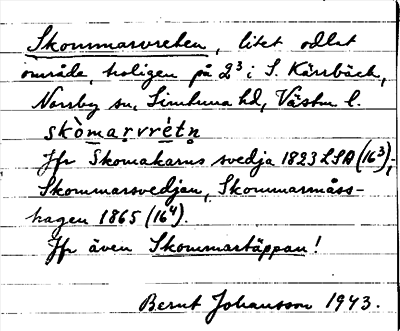 Skommarvreten, litet odlat
område, troligen på 2³ i S. Kärrbäck,
Norrby sn, Simtuna hd, Västm. l.
skòmaṛvrétṇ
Jfr Skomakarns svedja 1823 LSA (16³),
Skommarsvedjan, Skommarmåss-
hagen 1865 (16⁴).
Jfr även Skommartäppan!
Bernt Johansson 1943.